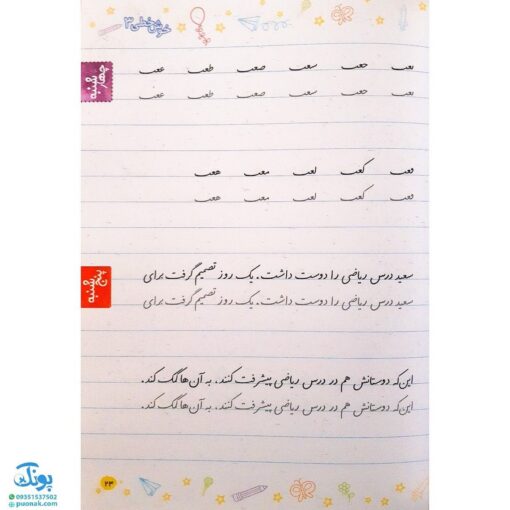 خوش‌خطی ۳
چهارشنبه
بعب حعب سعب صعب طعب ععب
بعب حعب سعب صعب طعب ععب
فعب کعب لعب معب هعب
فعب کعب لعب معب هعب
پنج‌شنبه
سعید درس ریاضی را دوست داشت. یک روز تصمیم گرفت برای
سعید درس ریاضی را دوست داشت. یک روز تصمیم گرفت برای
این‌که دوستانش هم در درس ریاضی پیشرفت کنند، به آن‌ها کمک کند.
این‌که دوستانش هم در درس ریاضی پیشرفت کنند، به آن‌ها کمک کند.
۲۳
پونک
09351537502
puonak.com